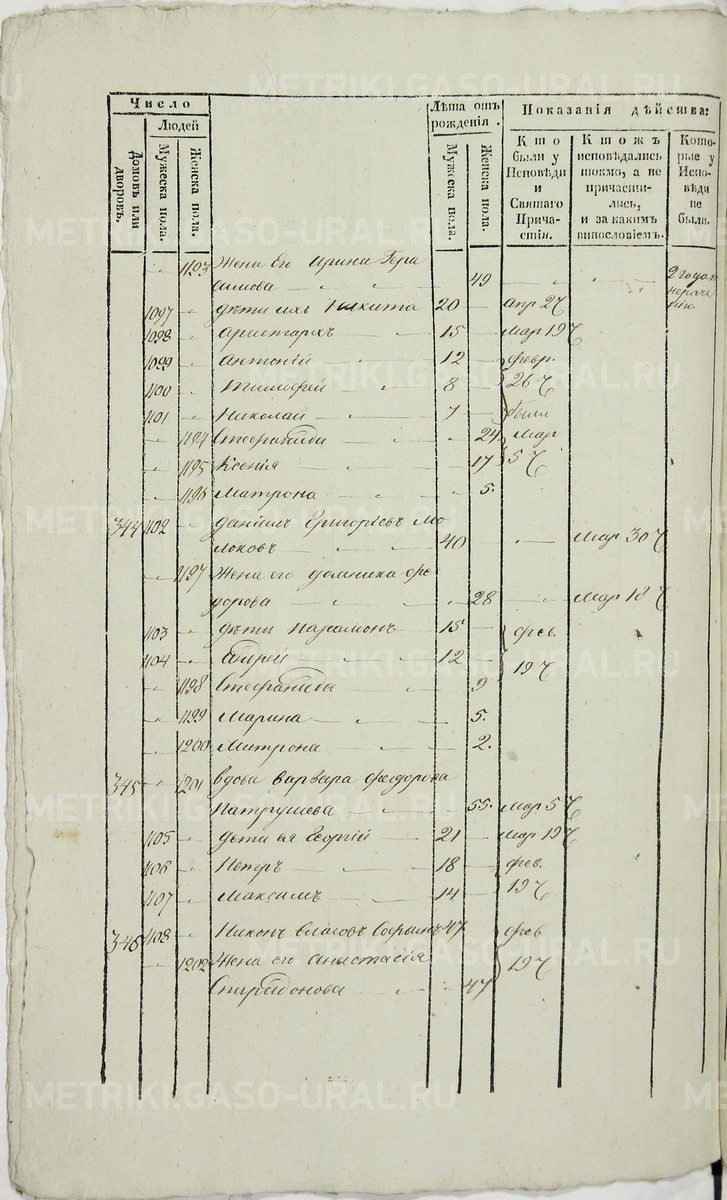 METRIKI.GASO-URAL.RU
Число
Людей
Домовъ или дворовъ.
Мужеска пола.
Женска пола.
Лѣта отъ рожденія.
Мужеска пола.
Женска пола.
Показанія дѣйства:
Кто были у Исповѣди и Святаго Причастія.
Ктожъ исповѣдались токмо, а не причастились, и за какимъ винословіемъ.
Которые у Исповѣди не были.
1193 Жена Его Ирина Гера
симова 49 2 года
1097 дѣти ихъ Никита 20 Апр 27
1098 Аристархъ 15 Мар 19
1099 Антоній 12 февр.
1100 Тимофей 8 26
1101 Николай 7 были
1194 Стефанида 24 Мар
1195 Ксенія 17 5
1196 Матрона 5.
344 1102 Даніилъ Григорьевъ Мо
локовъ 40 Мар 30
1197 Жена его Домника Фе
дорова 28 Мар 18
1103 дѣти Парамонъ 15 фев.
1104 Андрей 12 19
1198 Стефанида 9
1199 Марина 5.
1200 Митрона 2.
345 1201 вдова Варвара Феодорова
Патрушева 55. Мар 5
1105 дѣти ея Георгій 21 Мар 19
1106 Петръ 18 фев.
1107 Максимъ 14 19
346 1108 Никонъ 47 фев
1202 Жена его Анастасія 19
Спиридонова 47